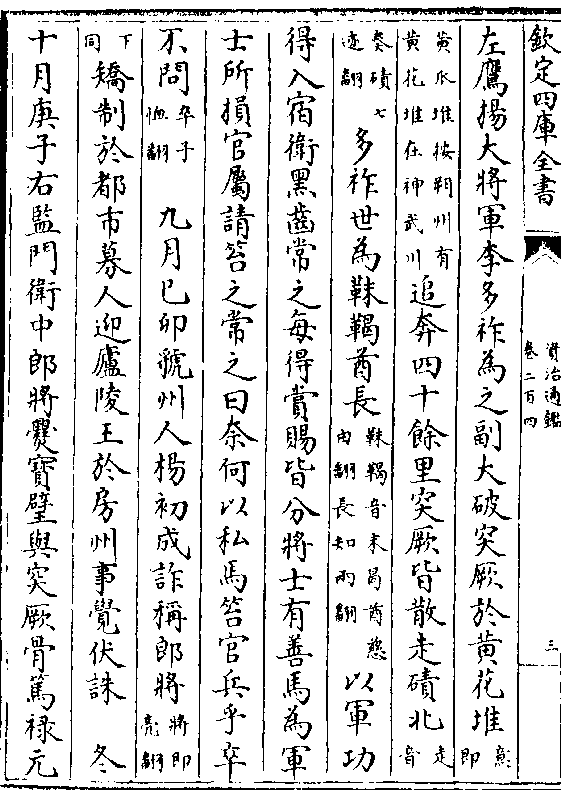 欽定四庫全書
資治通鑑
卷二百四
三
左鷹揚大將軍李多祚為之副大破突厥於黄花堆意即
黄瓜堆按朔州有黄花堆在神武川追奔四十餘里突厥皆散走磧北走音
奏磧七迹翻多祚世為靺鞨酋長靺鞨音末曷酋慈由翻長知兩翻以軍功
得入宿衛黑齒常之每得賞賜皆分將士有善馬為軍
士所損官屬請笞之常之曰奈何以私馬笞官兵乎卒
不問卒子恤翻 九月已卯虢州人楊初成詐稱郎將將即亮翻
下同矯制於都市募人迎廬陵王於房州事覺伏誅 冬
十月庚子右監門衛中郎將爨寶璧與突厥骨篤禄元